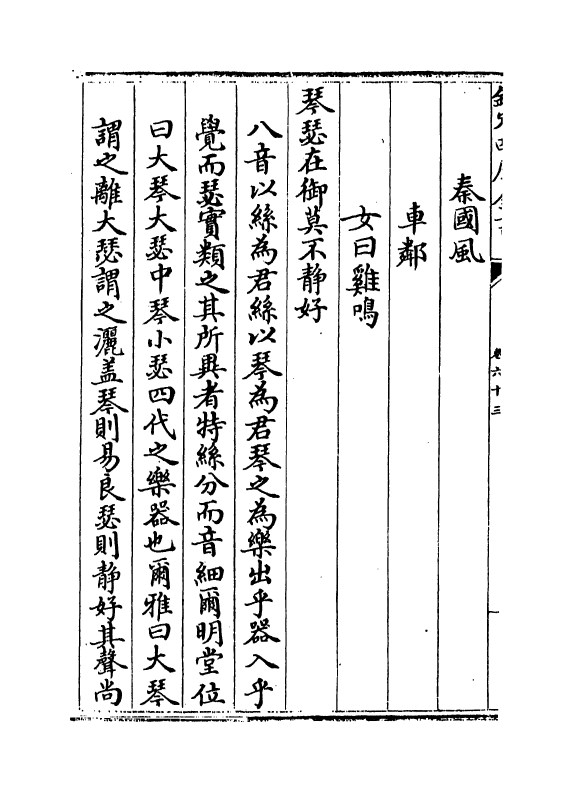 欽定四庫全書
卷六十三
秦國風
車鄰
女曰雞鳴
琴瑟在御莫不静好
八音以絲為君絲以琴為君琴之為樂出乎器入乎
覺而瑟實類之其所異者特絲分而音細爾明堂位
曰大琴大瑟中琴小瑟四代之樂器也爾雅曰大琴
謂之離大瑟謂之灑盖琴則易良瑟則静好其聲尚